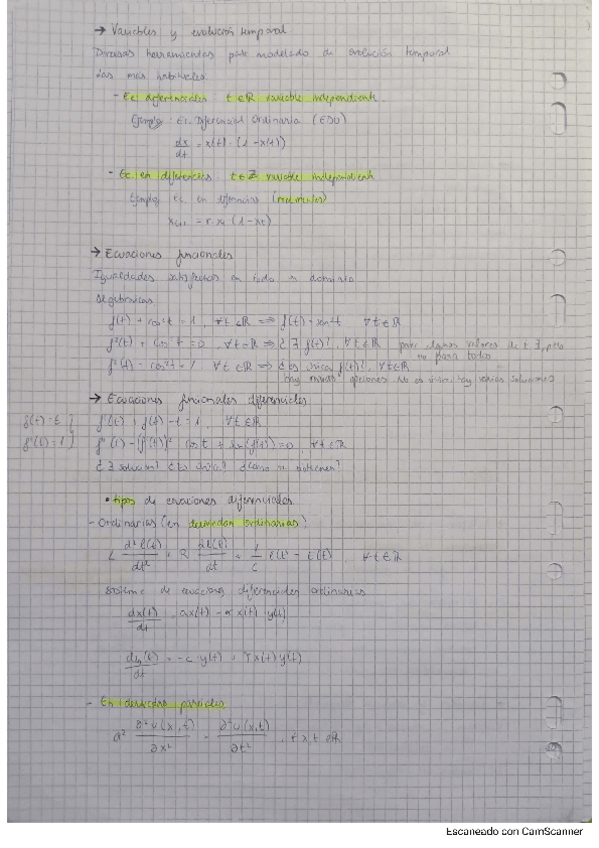 → Variables y evolución temporal
Diversas herramientas para modelado de evolución temporal
Las más habituales:
- Ec diferenciales : t ∈ ℝ variable independiente.
Ejemplo : Ec. Diferencial Ordinaria (EDO)
dx/dt = x(t) · (1 - x(t))
- Ec en diferencias : t ∈ ℤ variable independiente
Ejemplo Ec en diferencias
= r · xt (1 - xt)
→ Ecuaciones funcionales
Igualdades satisfechas en todo un dominio
algebraicas
f(t) + cos²t = 1, ∀t ∈ ℝ ⟹ f(t) = sen²t ∀t ∈ ℝ
f²(t) + cos²t = 0, ∀t ∈ ℝ ⟹ ¿∃ f(t)?, ∀t ∈ ℝ para algunos valores de t ∃, pero
no para todo
∀t ∈ ℝ ⟹ ¿es única f(t)?, ∀t ∈ ℝ
hay varias soluciones
→ Ecuaciones funcionales diferenciales
f(t) = t
f'(t) = 1
f'(t) + f(t) - t = 1, ∀t ∈ ℝ
¿∃ solución? ¿Es única? ¿Cómo se obtienen?
• tipos de ecuaciones diferenciales
- Ordinarias (en derivadas ordinarias)
∀t ∈ ℝ
Sistema de ecuaciones diferenciales ordinarias
dx(t)/dt = ax(t) - α x(t) y(t)
dy(t)/dt = -c y(t) + γ x(t) y(t)
- En derivadas parciales
a² ∂²u(x,t)/∂x² = ∂²u(x,t)/∂t²
Escaneado con CamScanner